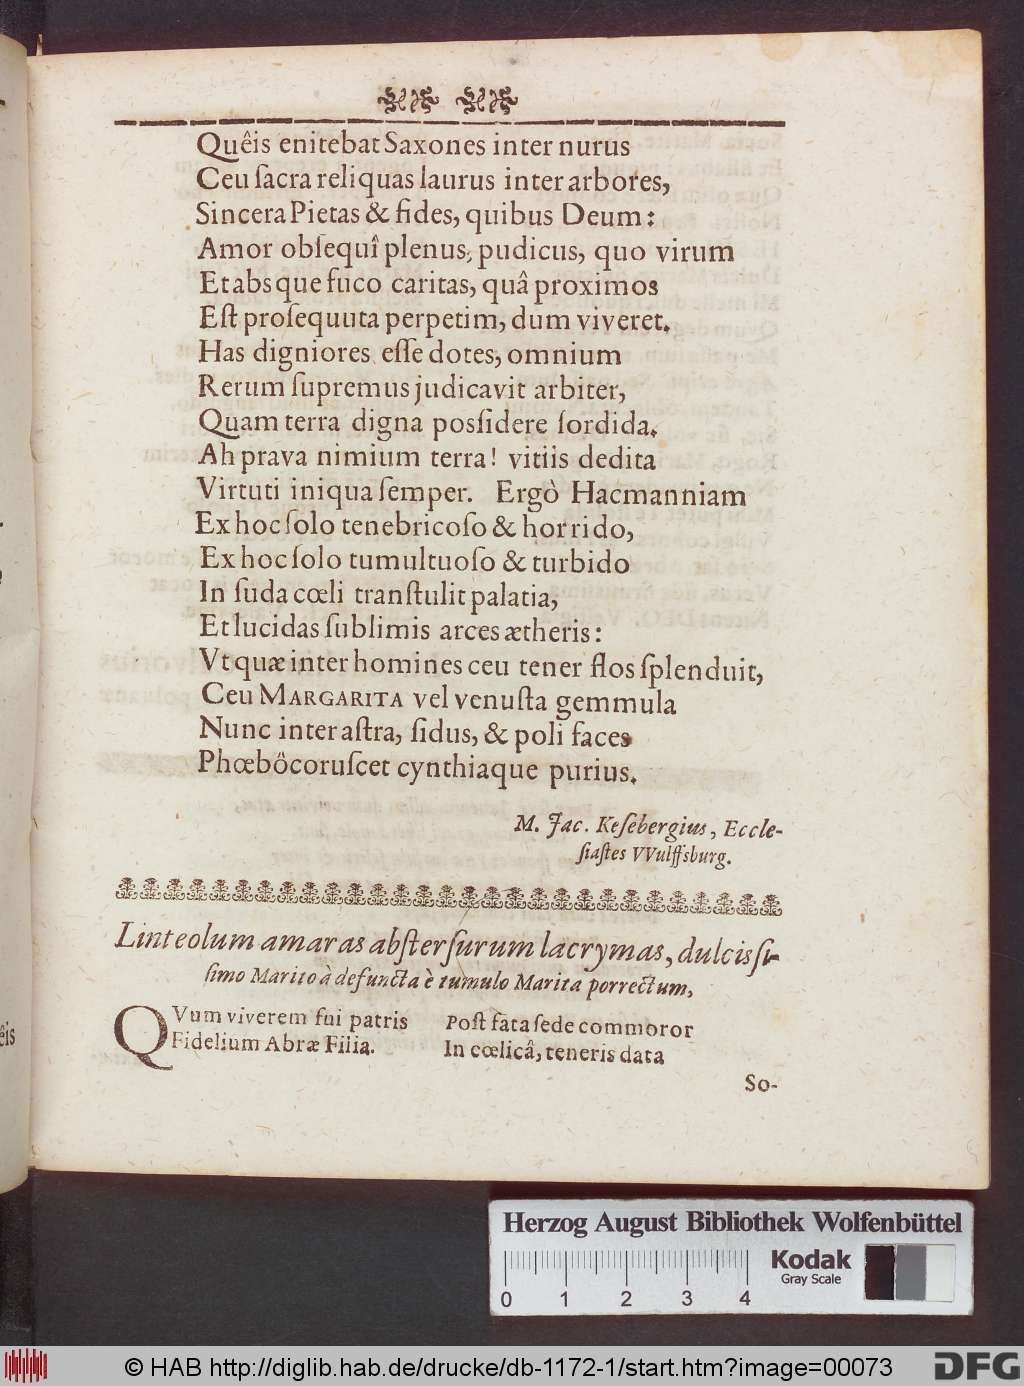 Quêis enitebat Saxones inter nurus
Ceu ſacra reliquas laurus inter arbores,
Sincera Pietas & fides, quibus Deum:
Amor obſequî plenus, pudicus, quo virum
Et absque fuco caritas, quâ proximos
Eſt proſequuta perpetim, dum viveret.
Has digniores eſſe dotes, omnium
Rerum ſupremus judicavit arbiter,
Quam terra digna posſidere ſordida.
Ah prava nimium terra! vitiis dedita
Virtuti iniqua ſemper. Ergò Hacmanniam
Ex hoc ſolo tenebricoſo & horrido,
Ex hoc ſolo tumultuoſo & turbido
In ſuda cœli tranſtulit palatia,
Et lucidas ſublimis arces ætheris:
Vt quæ inter homines ceu tener flos ſplenduit,
Ceu MARGARITA vel venuſta gemmula
Nunc inter aſtra, ſidus, & poli faces
Phœbô coruſcet cynthiaque purius.
M. Jac. Keſebergius, Eccle-
ſiaſtes VVulffsburg.
Linteolum amaras abſterſurum lacrymas, dulcisſi-
ſimo Marito à defuncta è tumulo Marita porrectum,
QVum viverem fui patris
Fidelium Abræ Filia.
Poſt fata ſede commoror
In cœlicâ, teneris data
So-
Herzog August Bibliothek Wolfenbüttel
0 1 2 3 4
Kodak
Gray Scale
© HAB http://diglib.hab.de/drucke/db-1172-1/start.htm?image=00073
DFG